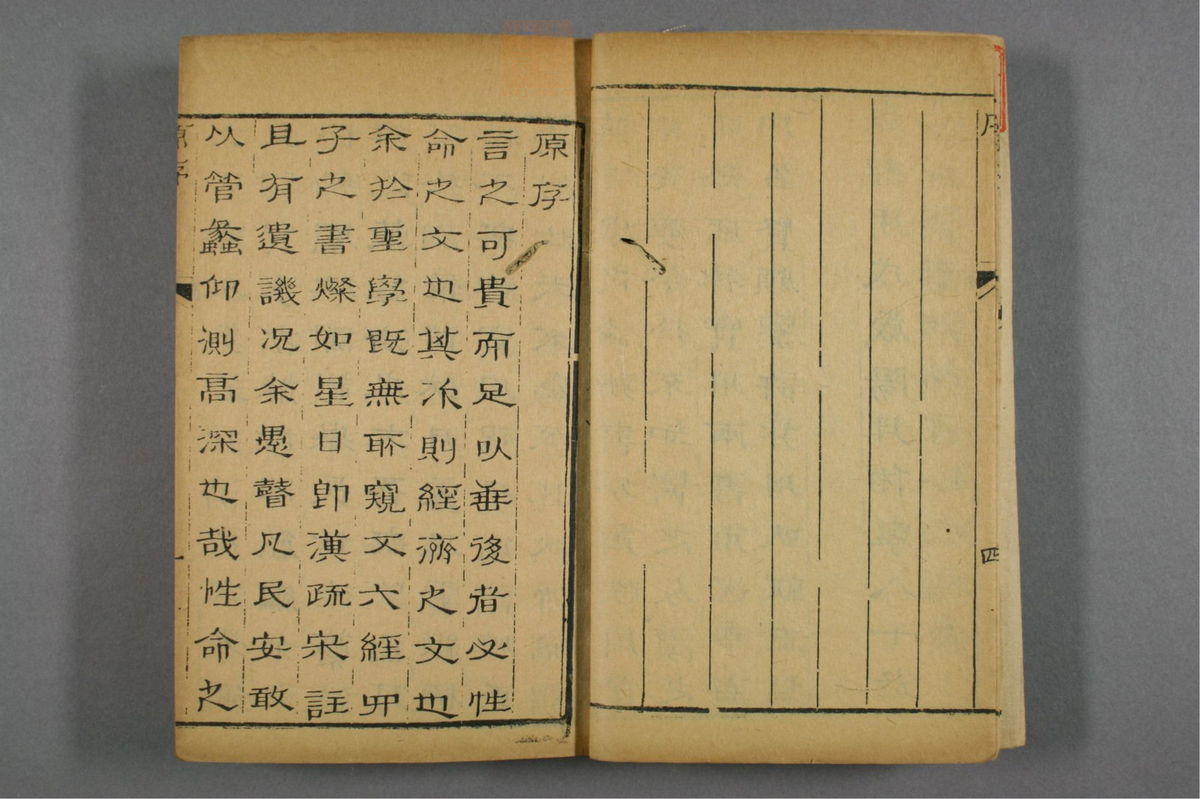 序
四
原序
言之可貴而足以垂後者必性
命之文也其次則經濟之文也
余於聖學既無所窺文六經四
子之書燦如星日即漢疏宋註
且有遺譏况余愚瞽凡民安敢
以管蠡仰測高深也哉性命之
原序
一